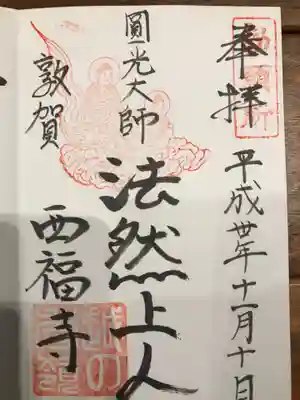 奉拝
平成卅年十一月十日
圓光大師
法然上人
敦賀
西福寺